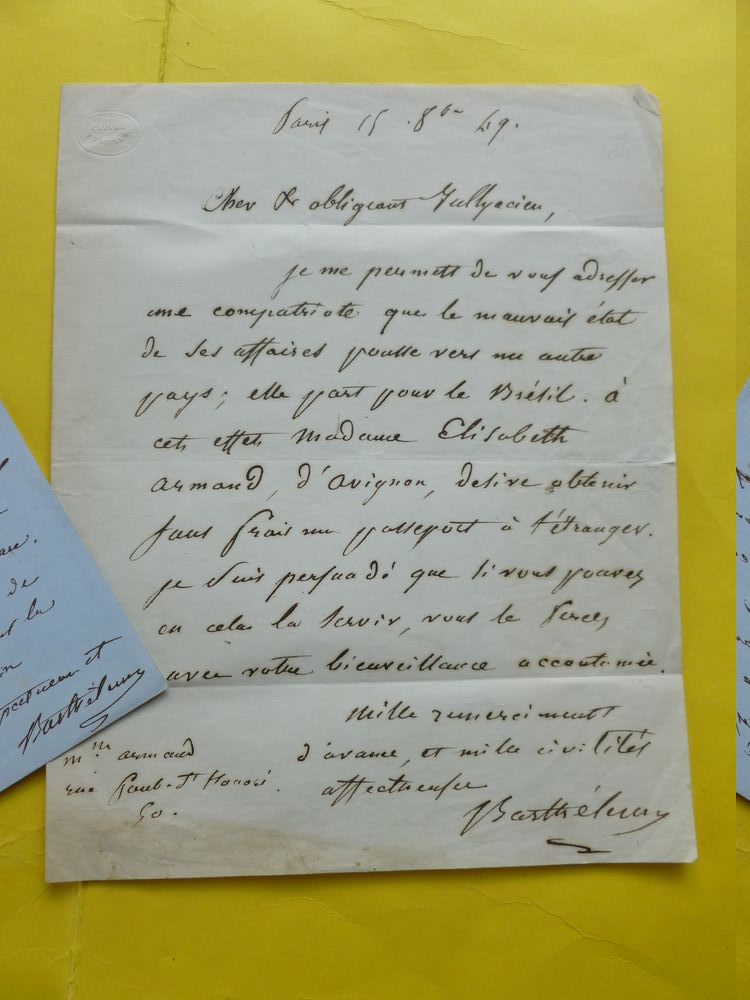 Paris 15 8bre 49.
Cher & obligeant
je me permett de vous adresser
une compatriote que le mauvais état
de ses affaires pousse vers un autre
pays; elle part pour le Brésil. à
cet effet Madame Elisabeth
armand, d'avignon, desire obtenir
sans frais un passeport à l'étranger.
je suis persuadé que si vous pouvez
en cela la servir, vous le ferez
avec votre bienveillance accoutumée.
Mille remerciments
d'avance, et mille civilités
affectueuses
Barthélemy
mme armand
rue Faub. St Honoré.
de
la
et
Barthélemy